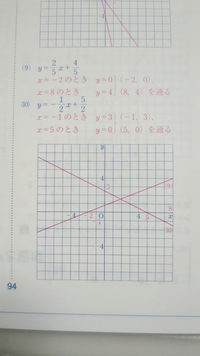 (9) y=2/5x+4/5
x=-2のとき y=0 (-2, 0),
x=8のとき y=4 (8, 4) を通る
(10) y=-1/2x+5/2
x=-1のとき y=3 (-1, 3),
x=5のとき y=0 (5, 0) を通る
-4 -2 O 4 8 x
94